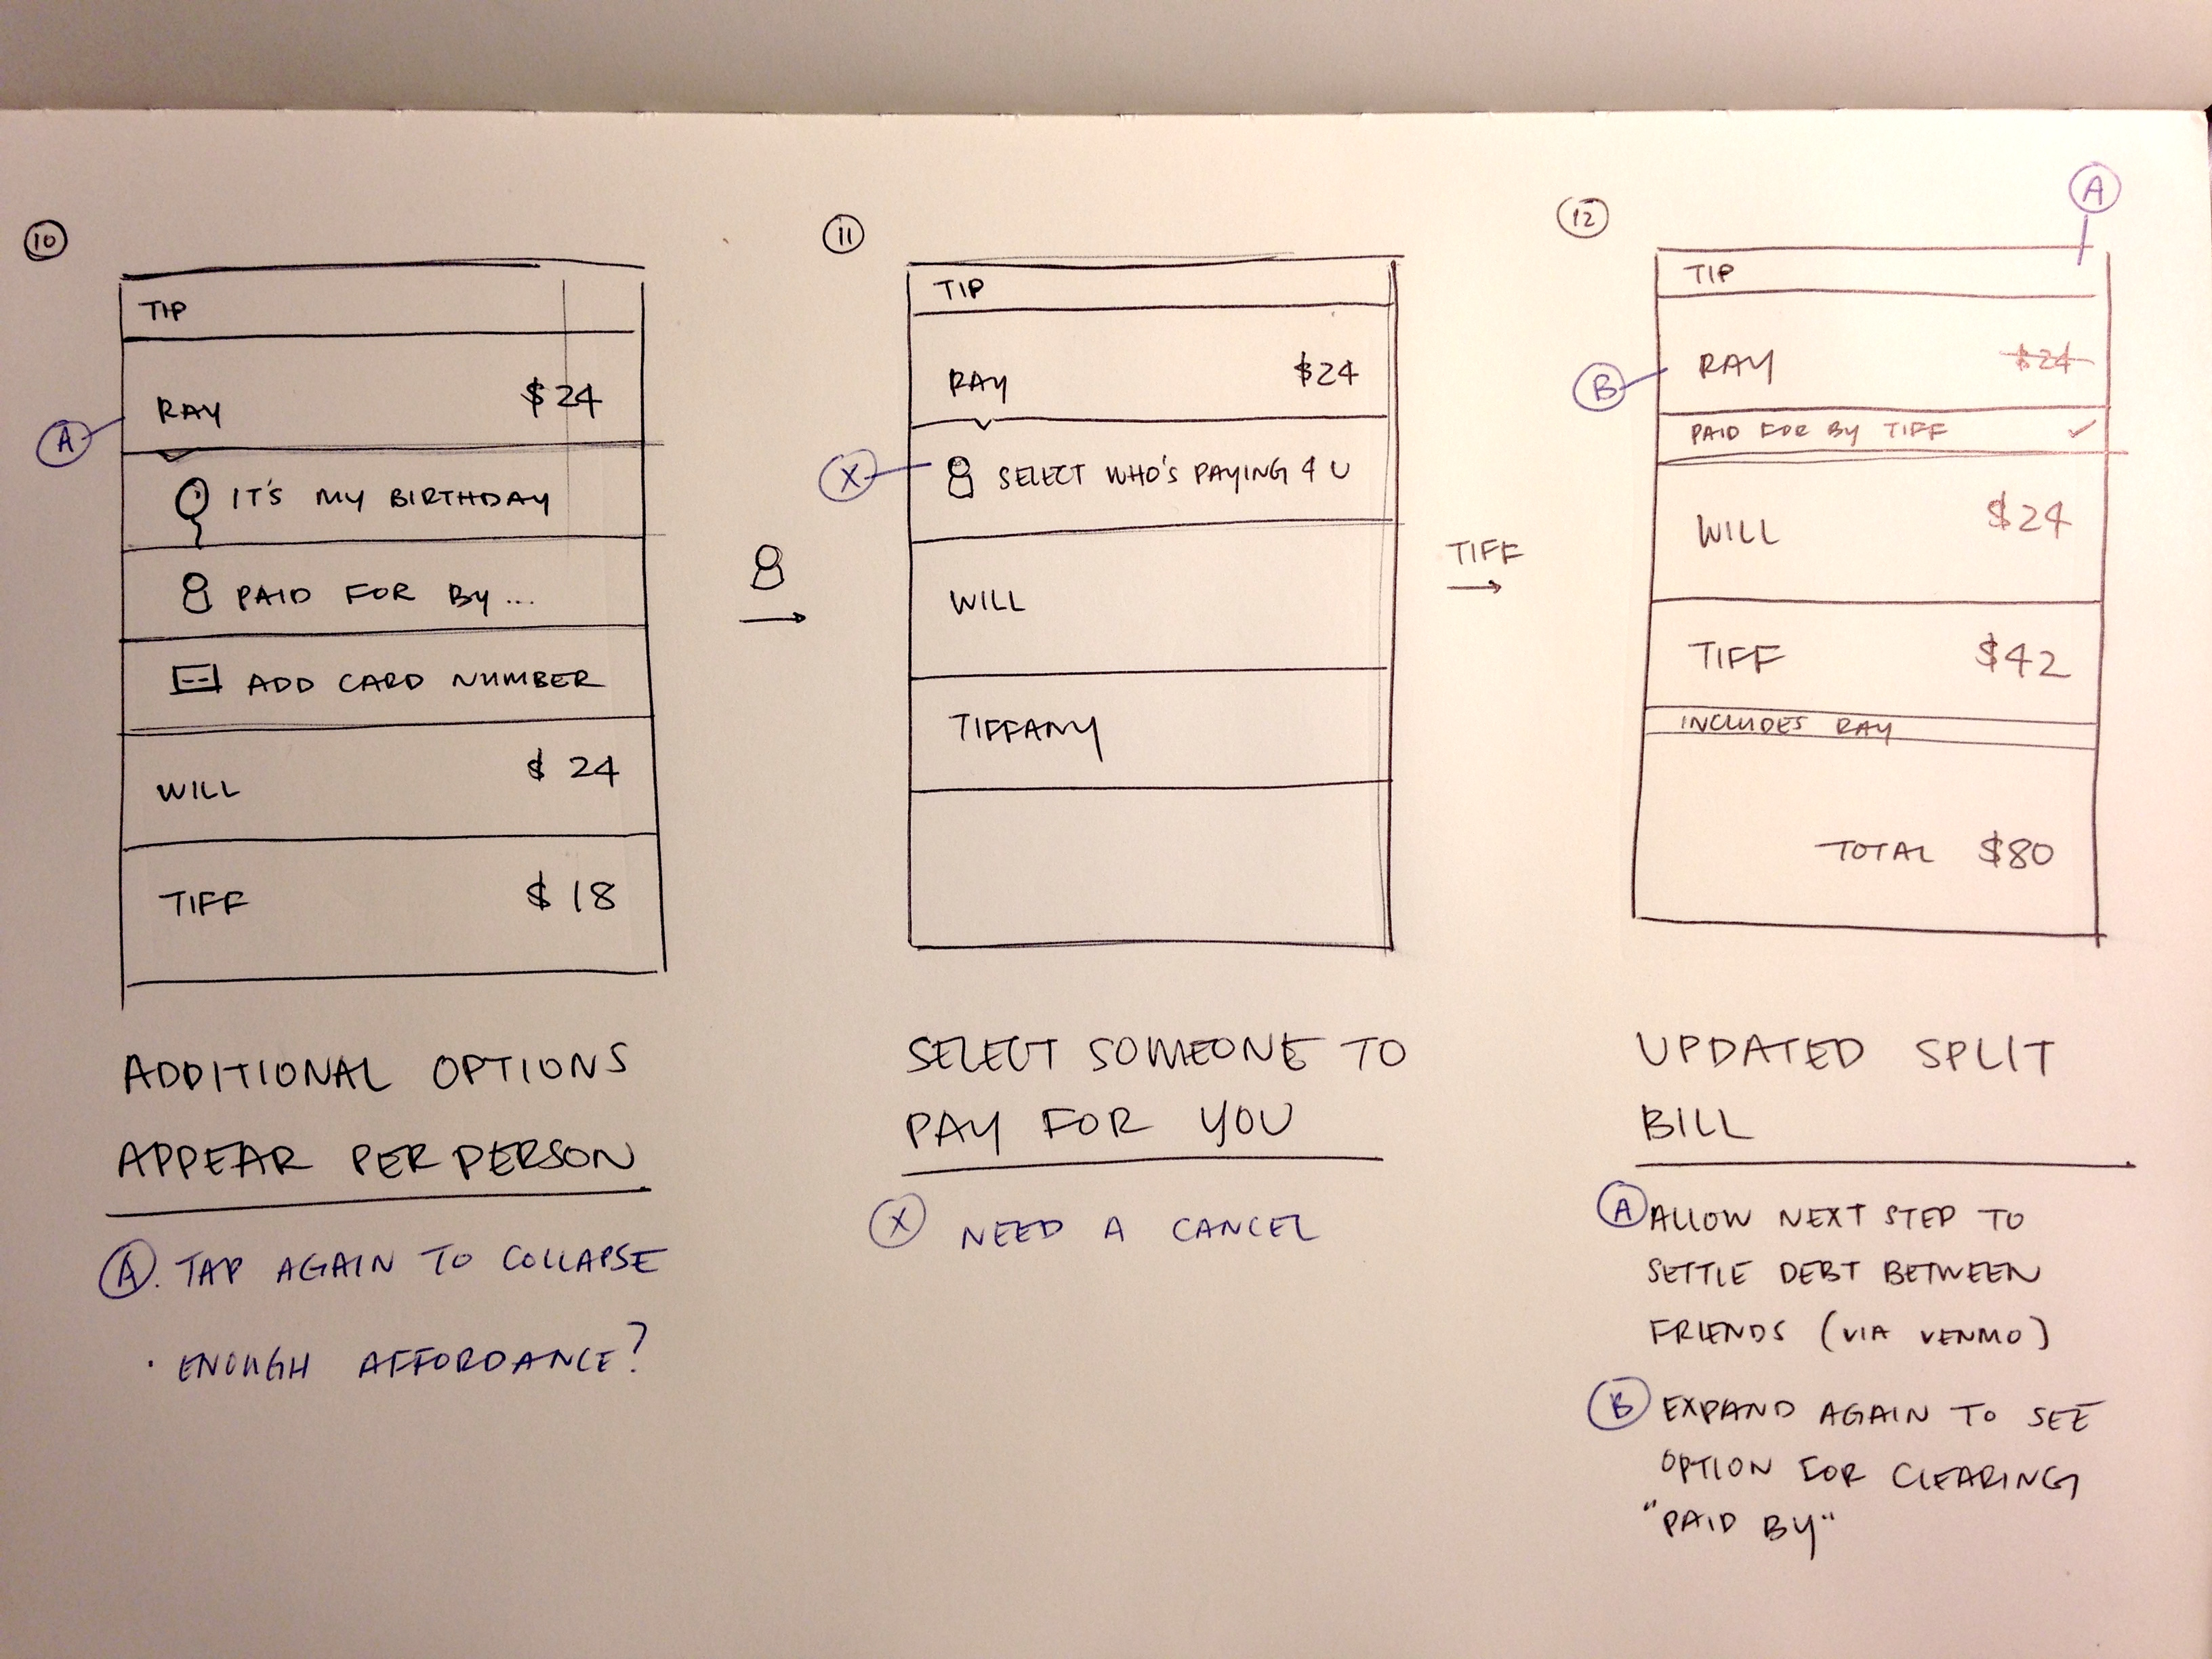 10
TIP
RAY $24
A
IT'S MY BIRTHDAY
PAID FOR BY ...
ADD CARD NUMBER
WILL $24
TIFF $18
ADDITIONAL OPTIONS
APPEAR PER PERSON
A. TAP AGAIN TO COLLAPSE
· ENOUGH AFFORDANCE?
11
TIP
RAY $24
X
SELECT WHO'S PAYING 4 U
WILL
TIFFANY
SELECT SOMEONE TO
PAY FOR YOU
X NEED A CANCEL
TIFF
12
A
TIP
B
RAY $24
PAID FOR BY TIFF ✓
WILL $24
TIFF $42
INCLUDES RAY
TOTAL $80
UPDATED SPLIT
BILL
A ALLOW NEXT STEP TO
SETTLE DEBT BETWEEN
FRIENDS (VIA VENMO)
B EXPAND AGAIN TO SEE
OPTION FOR CLEARING
"PAID BY"